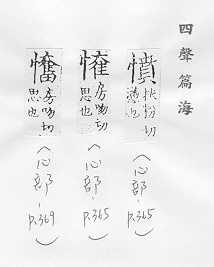 四聲篇海
憤 扶粉切
懣也
（心部·P.365）
房吻切
思也
（心部·P.365）
房吻切
思也
（心部·P.369）